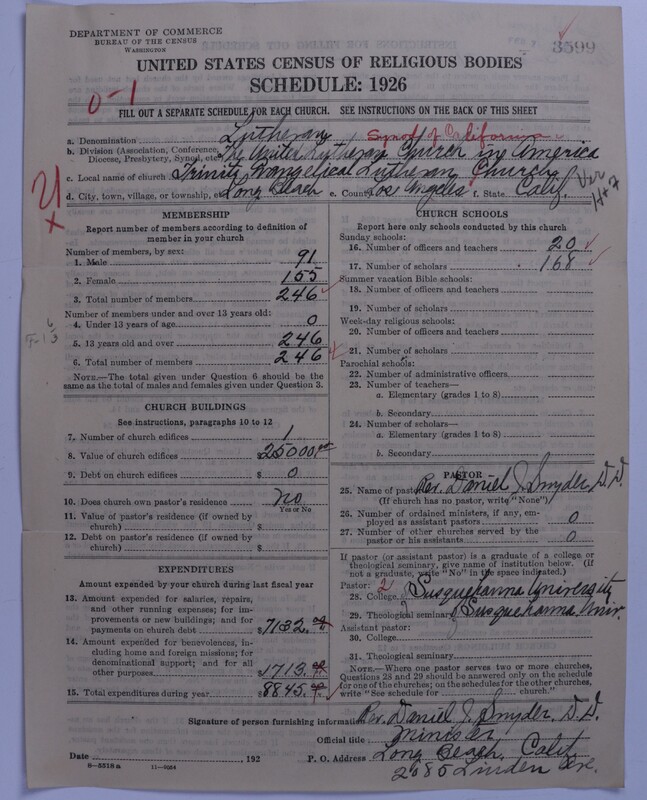 DEPARTMENT OF COMMERCE
BUREAU OF THE CENSUS
WASHINGTON
3599
UNITED STATES CENSUS OF RELIGIOUS BODIES
SCHEDULE: 1926
0-1
FILL OUT A SEPARATE SCHEDULE FOR EACH CHURCH. SEE INSTRUCTIONS ON THE BACK OF THIS SHEET
a. Denomination Lutheran Synod of California
b. Division (Association, Conference, Diocese, Presbytery, Synod, etc.) The United Lutheran Church in America
c. Local name of church Trinity Evangelical Lutheran Church
d. City, town, village, or township, etc. Long Beach e. County Los Angeles f. State Calif.
MEMBERSHIP
Report number of members according to definition of
member in your church
Number of members, by sex:
1. Male 91
2. Female 155
3. Total number of members 246
Number of members under and over 13 years old:
4. Under 13 years of age 0
5. 13 years old and over 246
6. Total number of members 246
NOTE.—The total given under Question 6 should be
same as the total of males and females given under Question 3.
CHURCH BUILDINGS
See instructions, paragraphs 10 to 12
7. Number of church edifices 1
8. Value of church edifices 25000.00
9. Debt on church edifices $ 0
10. Does church own pastor's residence? no
Yes or No
11. Value of pastor's residence (if owned by
church) $
12. Debt on pastor's residence (if owned by
church) $
EXPENDITURES
Amount expended by your church during last fiscal year
13. Amount expended for salaries, repairs,
and other running expenses; for im-
provements or new buildings; and for
payments on church debt $7132.
14. Amount expended for benevolences, in-
cluding home and foreign missions; for
denominational support; and for all
other purposes $1713.
15. Total expenditures during year $8845.
CHURCH SCHOOLS
Report here only schools conducted by this church
Sunday schools:
16. Number of officers and teachers 20
17. Number of scholars 168
Summer vacation Bible schools:
18. Number of officers and teachers
19. Number of scholars
Week-day religious schools:
20. Number of officers and teachers
21. Number of scholars
Parochial schools:
22. Number of administrative officers
23. Number of teachers—
a. Elementary (grades 1 to 8)
b. Secondary
24. Number of scholars—
a. Elementary (grades 1 to 8)
b. Secondary
PASTOR
25. Name of pastor Rev. Daniel J. Snyder D.D.
(If church has no pastor, write "None")
26. Number of ordained ministers, if any, em-
ployed as assistant pastors 0
27. Number of other churches served by the
pastor or his assistants 0
If pastor (or assistant pastor) is a graduate of a college or
theological seminary, give name of institution below. (If
not a graduate, write "No" in the space indicated.)
Pastor: 2
28. College Susquehanna University
29. Theological seminary Susquehanna Univ.
Assistant pastor:
30. College
31. Theological seminary
NOTE.—Where one pastor serves two or more churches,
Questions 28 and 29 should be answered only on the schedule
for one of the churches; on the schedules for the other churches,
write "See schedule for church."
Signature of person furnishing information Rev. Daniel J. Snyder, D.D.
Official title Minister
Date , 192 P. O. Address Long Beach, Calif.
2085 Linden Ave.
8—5518 a 11—9054